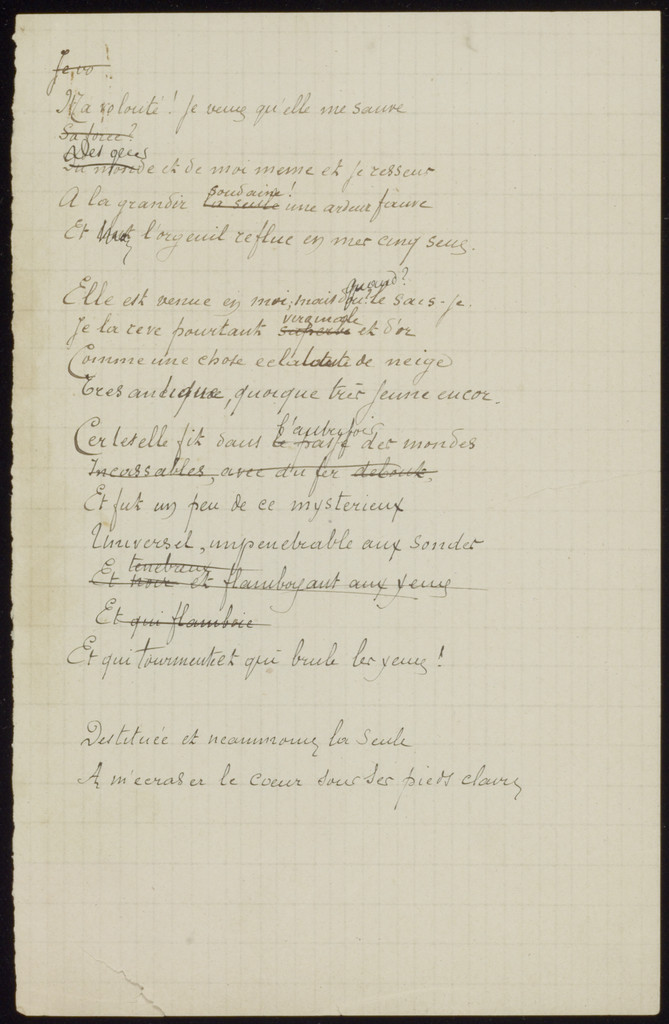 Je vo !
Ma volonté ! Je veux qu'elle me sauve
Sa force ?
Des gens
Du monde et de moi meme et je ressens
soudaine !
A la grandir la seule une ardeur fauve
Et l'orgeuil reflue en mes cinq sens.
quand ?
Elle est venue en moi, mais le sais-je.
virginale
Je la reve pourtant superbe et d'or
Comme une chose eclatante de neige
Tres antique, quoique très jeune encor.
l'autrefois
Certes elle fit dans le passé des mondes
Incassables, avec du fer debout,
Et fut un peu de ce mysterieux
Universel, impenetrable aux sondes
tenebreux
Et noir et flamboyant aux yeux
Et qui flamboie
Et qui tourmente et qui brule les yeux !
Destituée et neanmoins la seule
A m'ecraser le coeur sous ses pieds clairs